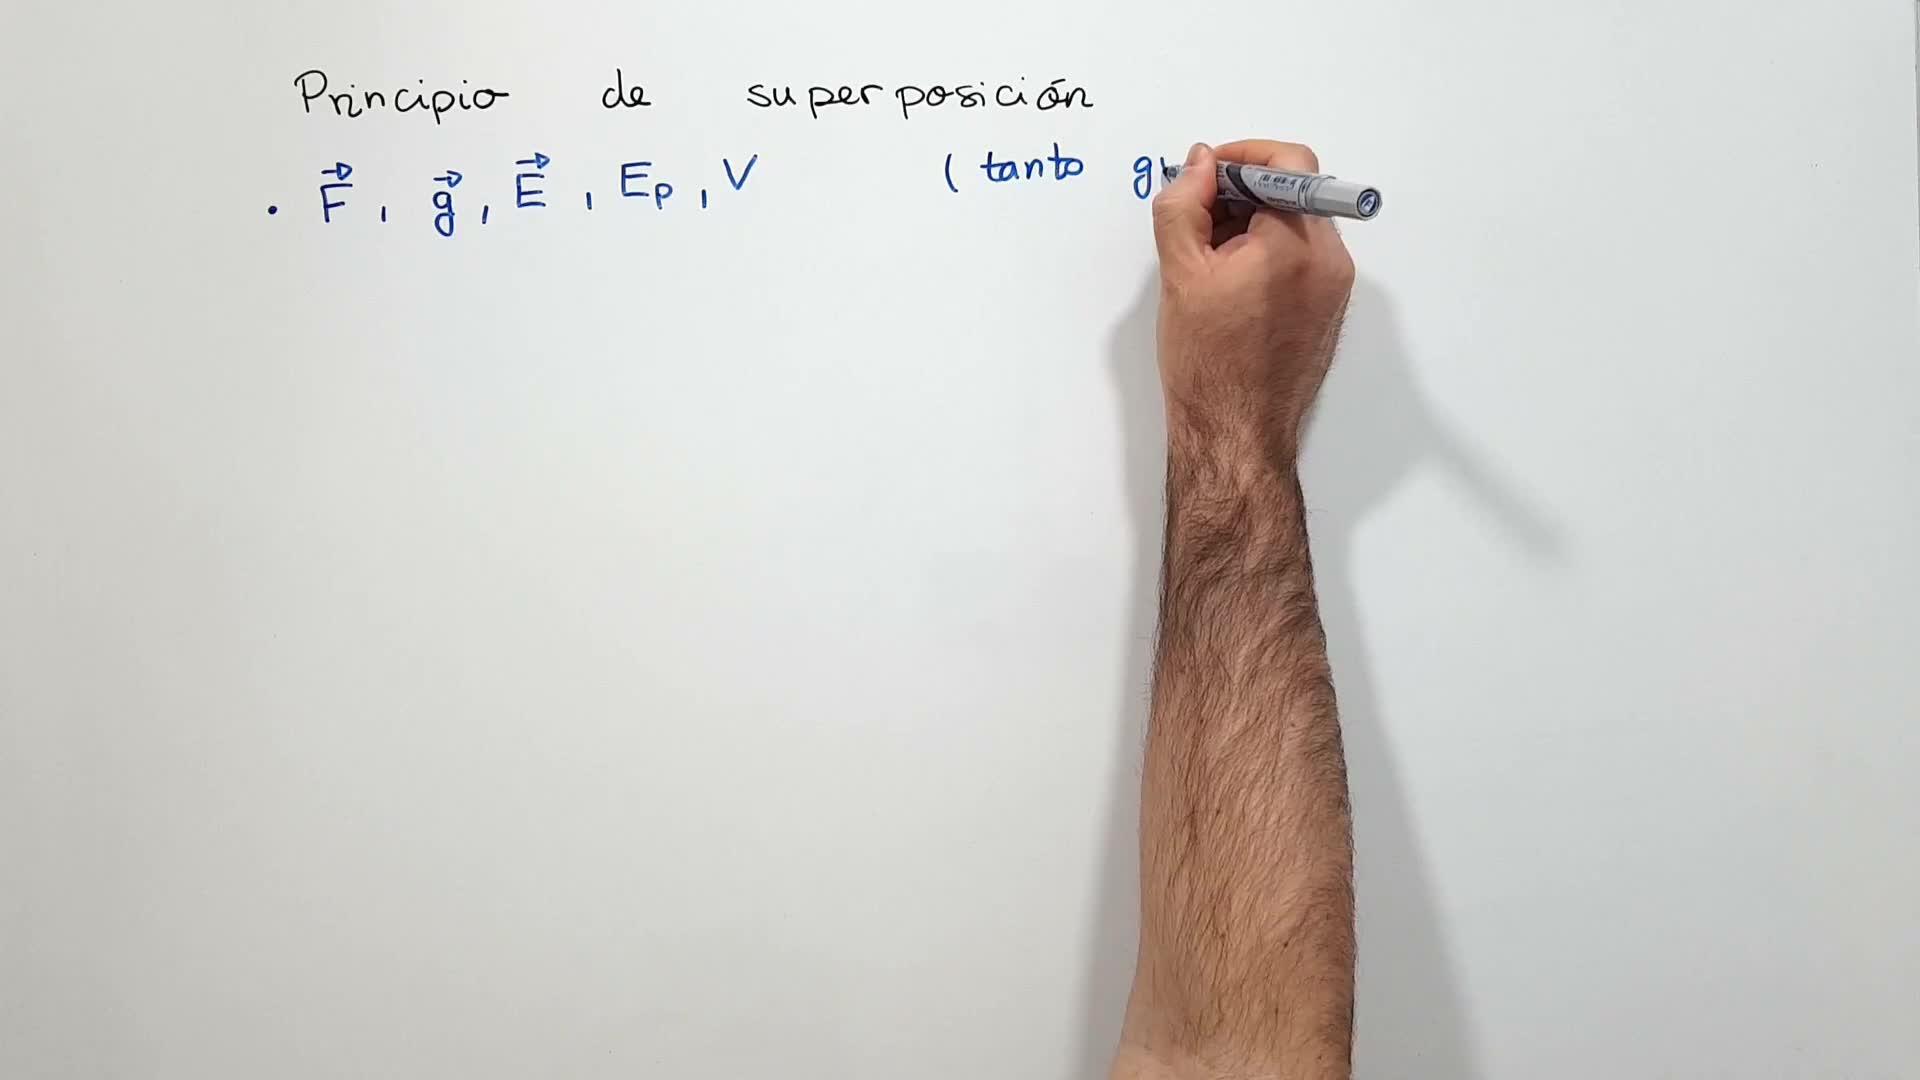 Principio de superposición
. F⃗, g⃗, E⃗, Ep, V (tanto